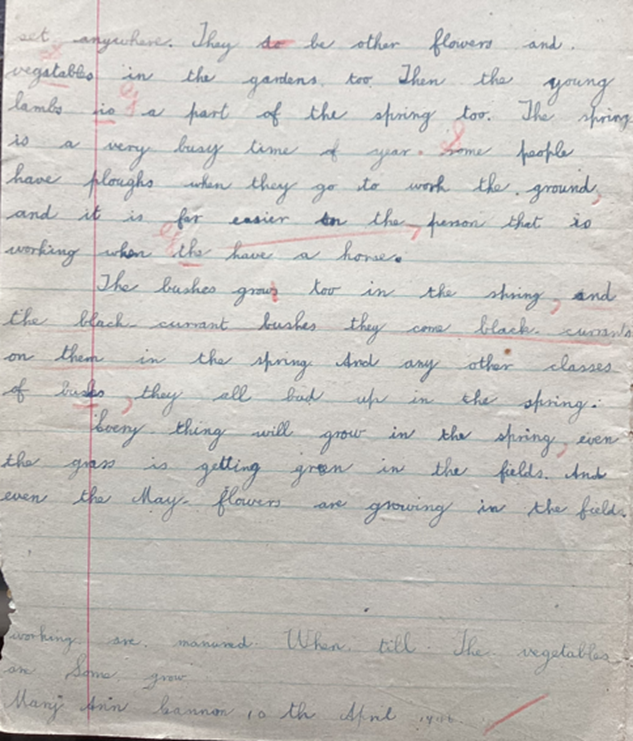 set anywhere. They to be other flowers and.
vegatabls in the gardens too. Then the young
lambs is a part of the spring too. The spring
is a very busy time of year. some people
have ploughs when they go to work the ground,
and it is far easier to the, person that is
working when the have a horse.
The bushes grows too in the shring, and
the black-currant bushes they come black-currants
on them in the spring. And any other classes
of bushs, they all bud up in the spring.
Every thing will grow in the spring, even
the grass is getting green in the fields. And
even the May-flowers are growing in the field.
working are manured When till The vegetables
are Some grow
Mary Ann 10 th April